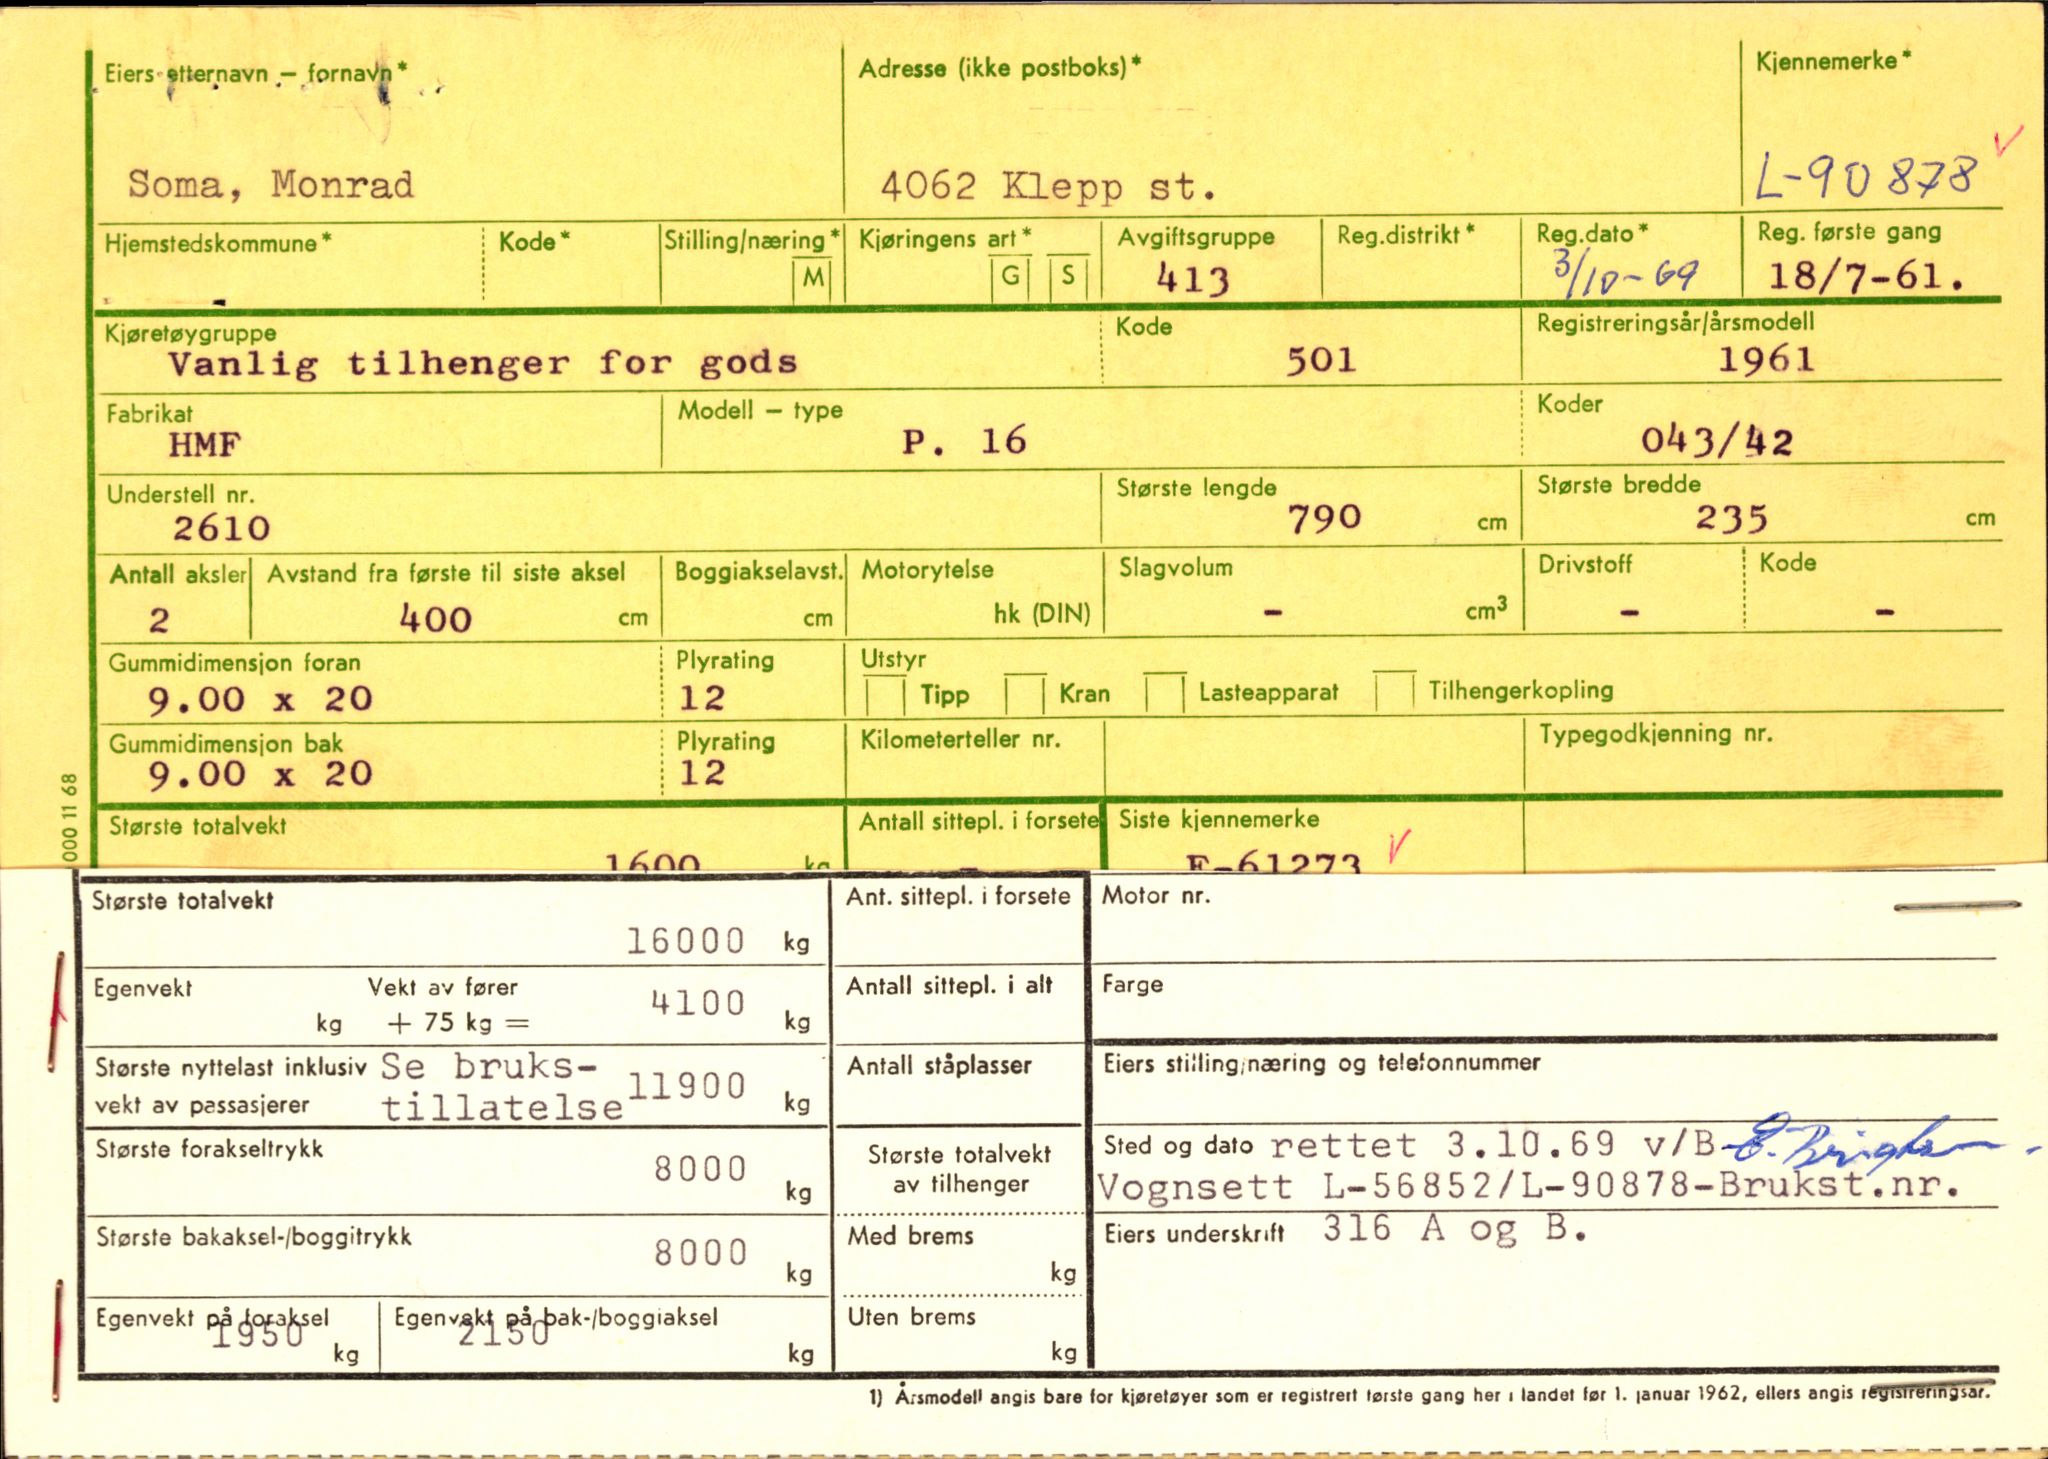 Eiers etternavn – fornavn* Adresse (ikke postboks)* Kjennemerke*
Soma, Monrad 4062 Klepp st. L-90878
Hjemstedskommune* Kode* Stilling/næring* Kjøringens art* Avgiftsgruppe Reg.distrikt* Reg.dato* Reg. første gang
M G S 413 3/10-69 18/7-61.
Kjøretøygruppe Kode Registreringsår/årsmodell
Vanlig tilhenger for gods 501 1961
Fabrikat Modell – type Koder
HMF P. 16 043/42
Understell nr. Største lengde Største bredde
2610 790 cm 235 cm
Antall aksler Avstand fra første til siste aksel Boggiakselavst. Motorytelse Slagvolum Drivstoff Kode
2 400 cm cm hk (DIN) – cm³ – –
Gummidimensjon foran Plyrating Utstyr
9.00 x 20 12 Tipp Kran Lasteapparat Tilhengerkopling
Gummidimensjon bak Plyrating Kilometerteller nr. Typegodkjenning nr.
9.00 x 20 12
000 11 68
Største totalvekt Antall sittepl. i forsete Siste kjennemerke
1600 kg –
Største totalvekt Ant. sittepl. i forsete Motor nr.
16000 kg
Egenvekt Vekt av fører 4100 Antall sittepl. i alt Farge
kg + 75 kg = kg
Største nyttelast inklusiv Se bruks- 11900 Antall ståplasser Eiers stilling/næring og telefonnummer
vekt av passasjerer tillatelse kg
Største forakseltrykk 8000 kg Største totalvekt av tilhenger Sted og dato rettet 3.10.69 v/B
Vognsett L-56852/L-90878-Brukst.nr.
Største bakaksel-/boggitrykk 8000 kg Med brems kg Eiers underskrift 316 A og B.
Egenvekt på foraksel Egenvekt på bak-/boggiaksel Uten brems
1950 kg 2150 kg kg
1) Årsmodell angis bare for kjøretøyer som er registrert første gang her i landet før 1. januar 1962, ellers angis registreringsår.